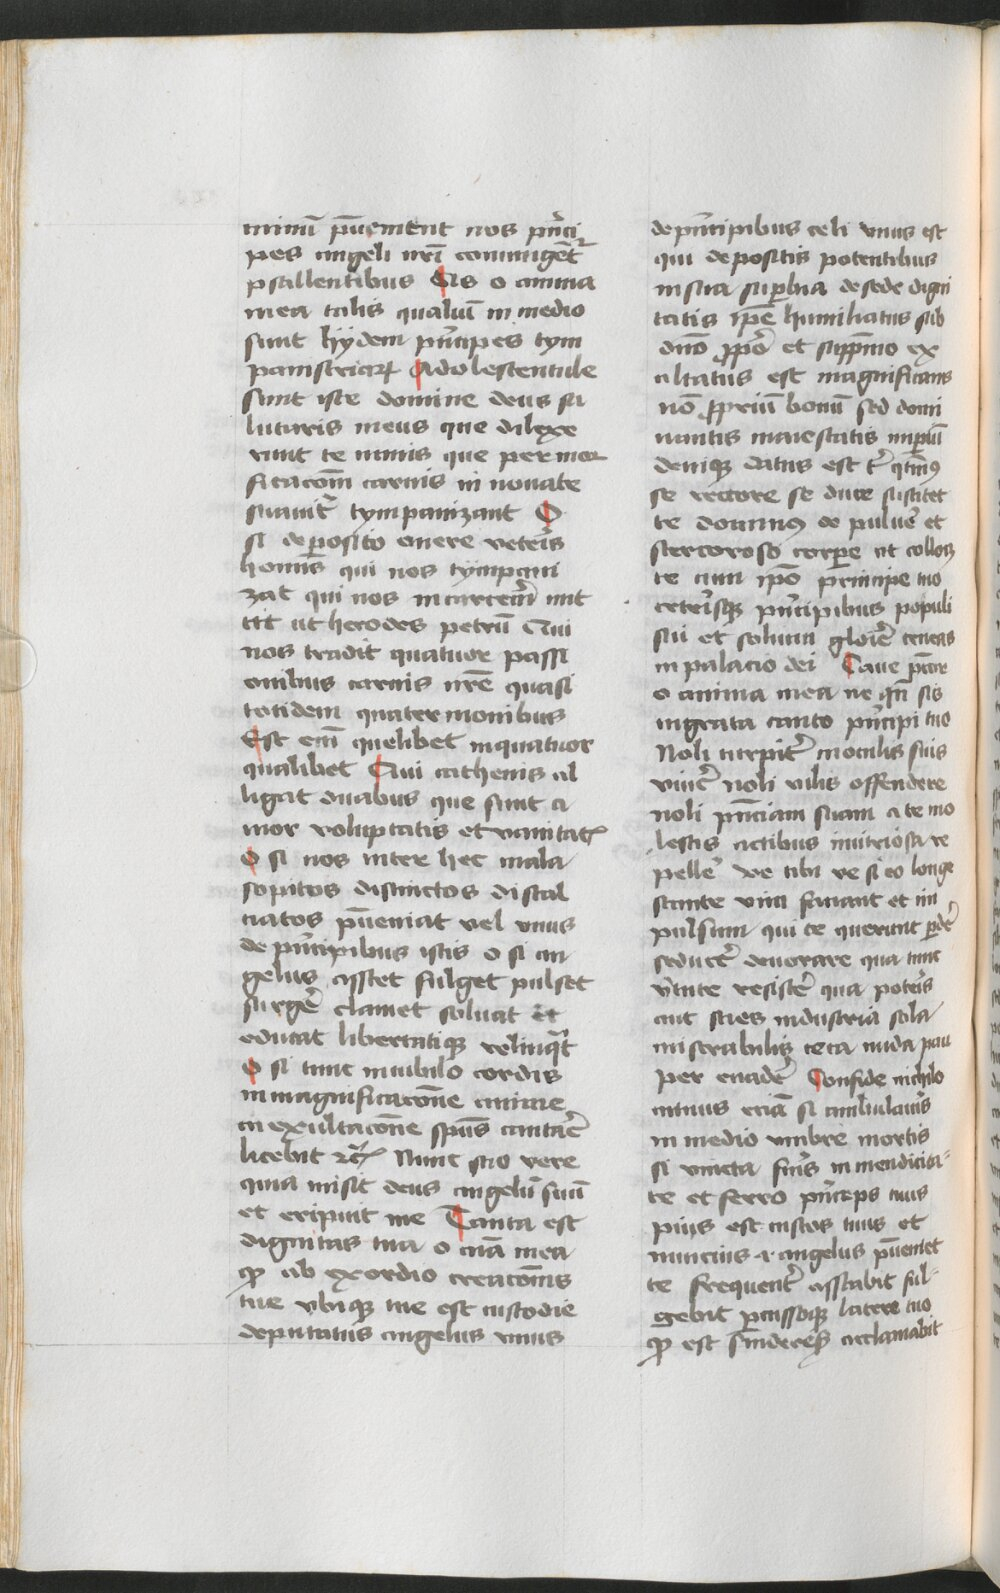 minū p̄uement nos p̄nci
pes angeli nr̄i coniu̅gēt^r
psallentibus Es o anima
mea talis qualiu̅ in medio
sunt hÿdem p̄ncipes tym
panistriaꝝ Adolescentule
sunt iste domine deus sa
lutaris meus que dilexe
runt te nimis que per mor
ficacōm carnis in nouate
suauit̓ tympanizant O
si deposito onere veteris
homīs qui nos tympani
zat qui nos in carcerē mit
tit ut herodes petrū Qui
nos tradit quatuor passi
onibus carnis nrē quasi
totidem quaternionibus
Est em̄ quelibet in quatuor
qualibet Qui cathenis al
ligat duabus que sunt a
mor voluptatis et vanitat̓
O si nos inter hec mala
sopitos distinctos distal
ciatos p̄ueniat vel vnus
de p̄ncipibus istis o si an
gelus asstet fulget pulset
surgē clamet soluat et
educat libertatiqꝫ relinq̄t
O si tunc in iubilo cordis
in magnificacōne anime
in exultacōne sp̄us cantar̄e
licebit ꝛc̄ Nunc scio vere
quia misit deus angelū suū
et eripuit me Tanta est
dignitas tua o aīa mea
ꝙ ab exordio creacōnis
tue vbiqꝫ tue est custodie
deputatus angelus vnus
de p̄ncipibus celi vnus est
qui depositis potentibus
in sua supbia de sede digni
tatis ip̄e humiliatus sub
dn̄o pp̄o et supp̄mo ex
altatus est magnificans
nō ppriū bonū sed domi
nantis maiestatis imp̄iū
deniqꝫ datus est t̓ qtin9
se rectore se duce suscitet
te domin9 de puluē et
stercoroso corpe ut collocꝫ
te cum ip̄o principe tuo
ceterisqꝫ p̄ncipibus populi
sui et solium glorīe teneas
in palacio dei Caue p̄cor
o anima mea ne qn̄ sis
ingrata tanto p̄ncipi tuo
Noli turpit̓ in oculis suis
viuē noli vilis offendere
noli p̄nciam suam a te mo
lestis actibus iniuriosa re
pellē ve tibi ve si eo longe
stante vim faciant et im
pulsum qui te querunt p̄dē
seducē deuorare qua tunc
v̄tute resistē qua poteris
aut scies industria sola
miserabilis ceca nuda pau
per euadē Confide nichilo
minus eciā si ambulaūis
in medio vmbre mortis
si vincta fūis in mendicita-
te et ferro p̄nceps tuus
pius est custos tuus et
nuncius ⁊ angelus p̄ueniet
te frequent̓ asstabit ful-
gebit p̄cussoqꝫ latere tuo
ꝙ est sinderes̄ acclamabit